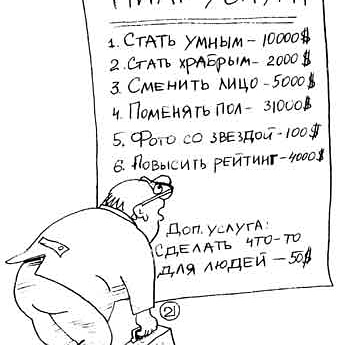 1. СТАТЬ УМНЫМ – 10000$
2. СТАТЬ ХРАБРЫМ – 2000$
3. СМЕНИТЬ ЛИЦО – 5000$
4. ПОМЕНЯТЬ ПОЛ – 31000$
5. ФОТО СО ЗВЕЗДОЙ – 100$
6. ПОВЫСИТЬ РЕЙТИНГ – 4000$
ДОП. УСЛУГА:
СДЕЛАТЬ ЧТО-ТО
ДЛЯ ЛЮДЕЙ – 50$
21